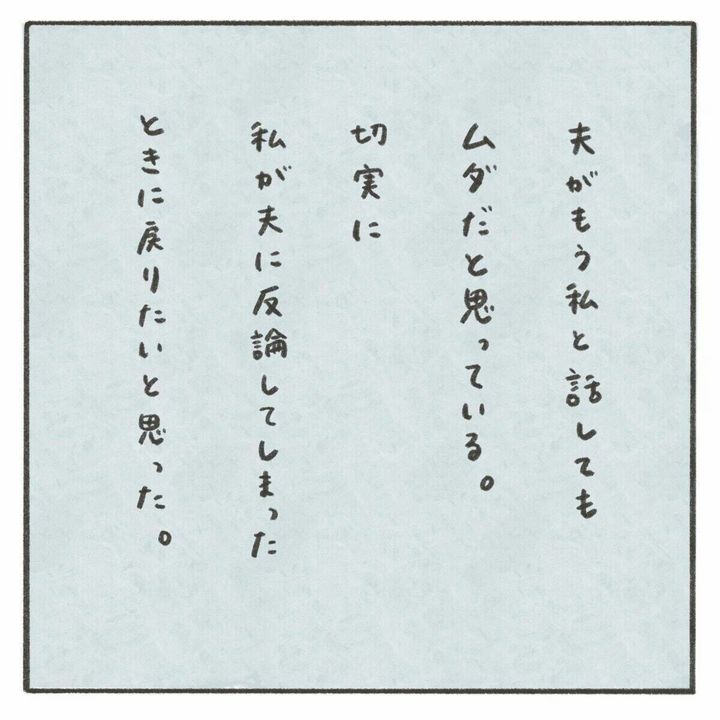 夫がもう私と話しても
ムダだと思っている。
切実に
私が夫に反論してしまった
ときに戻りたいと思った。